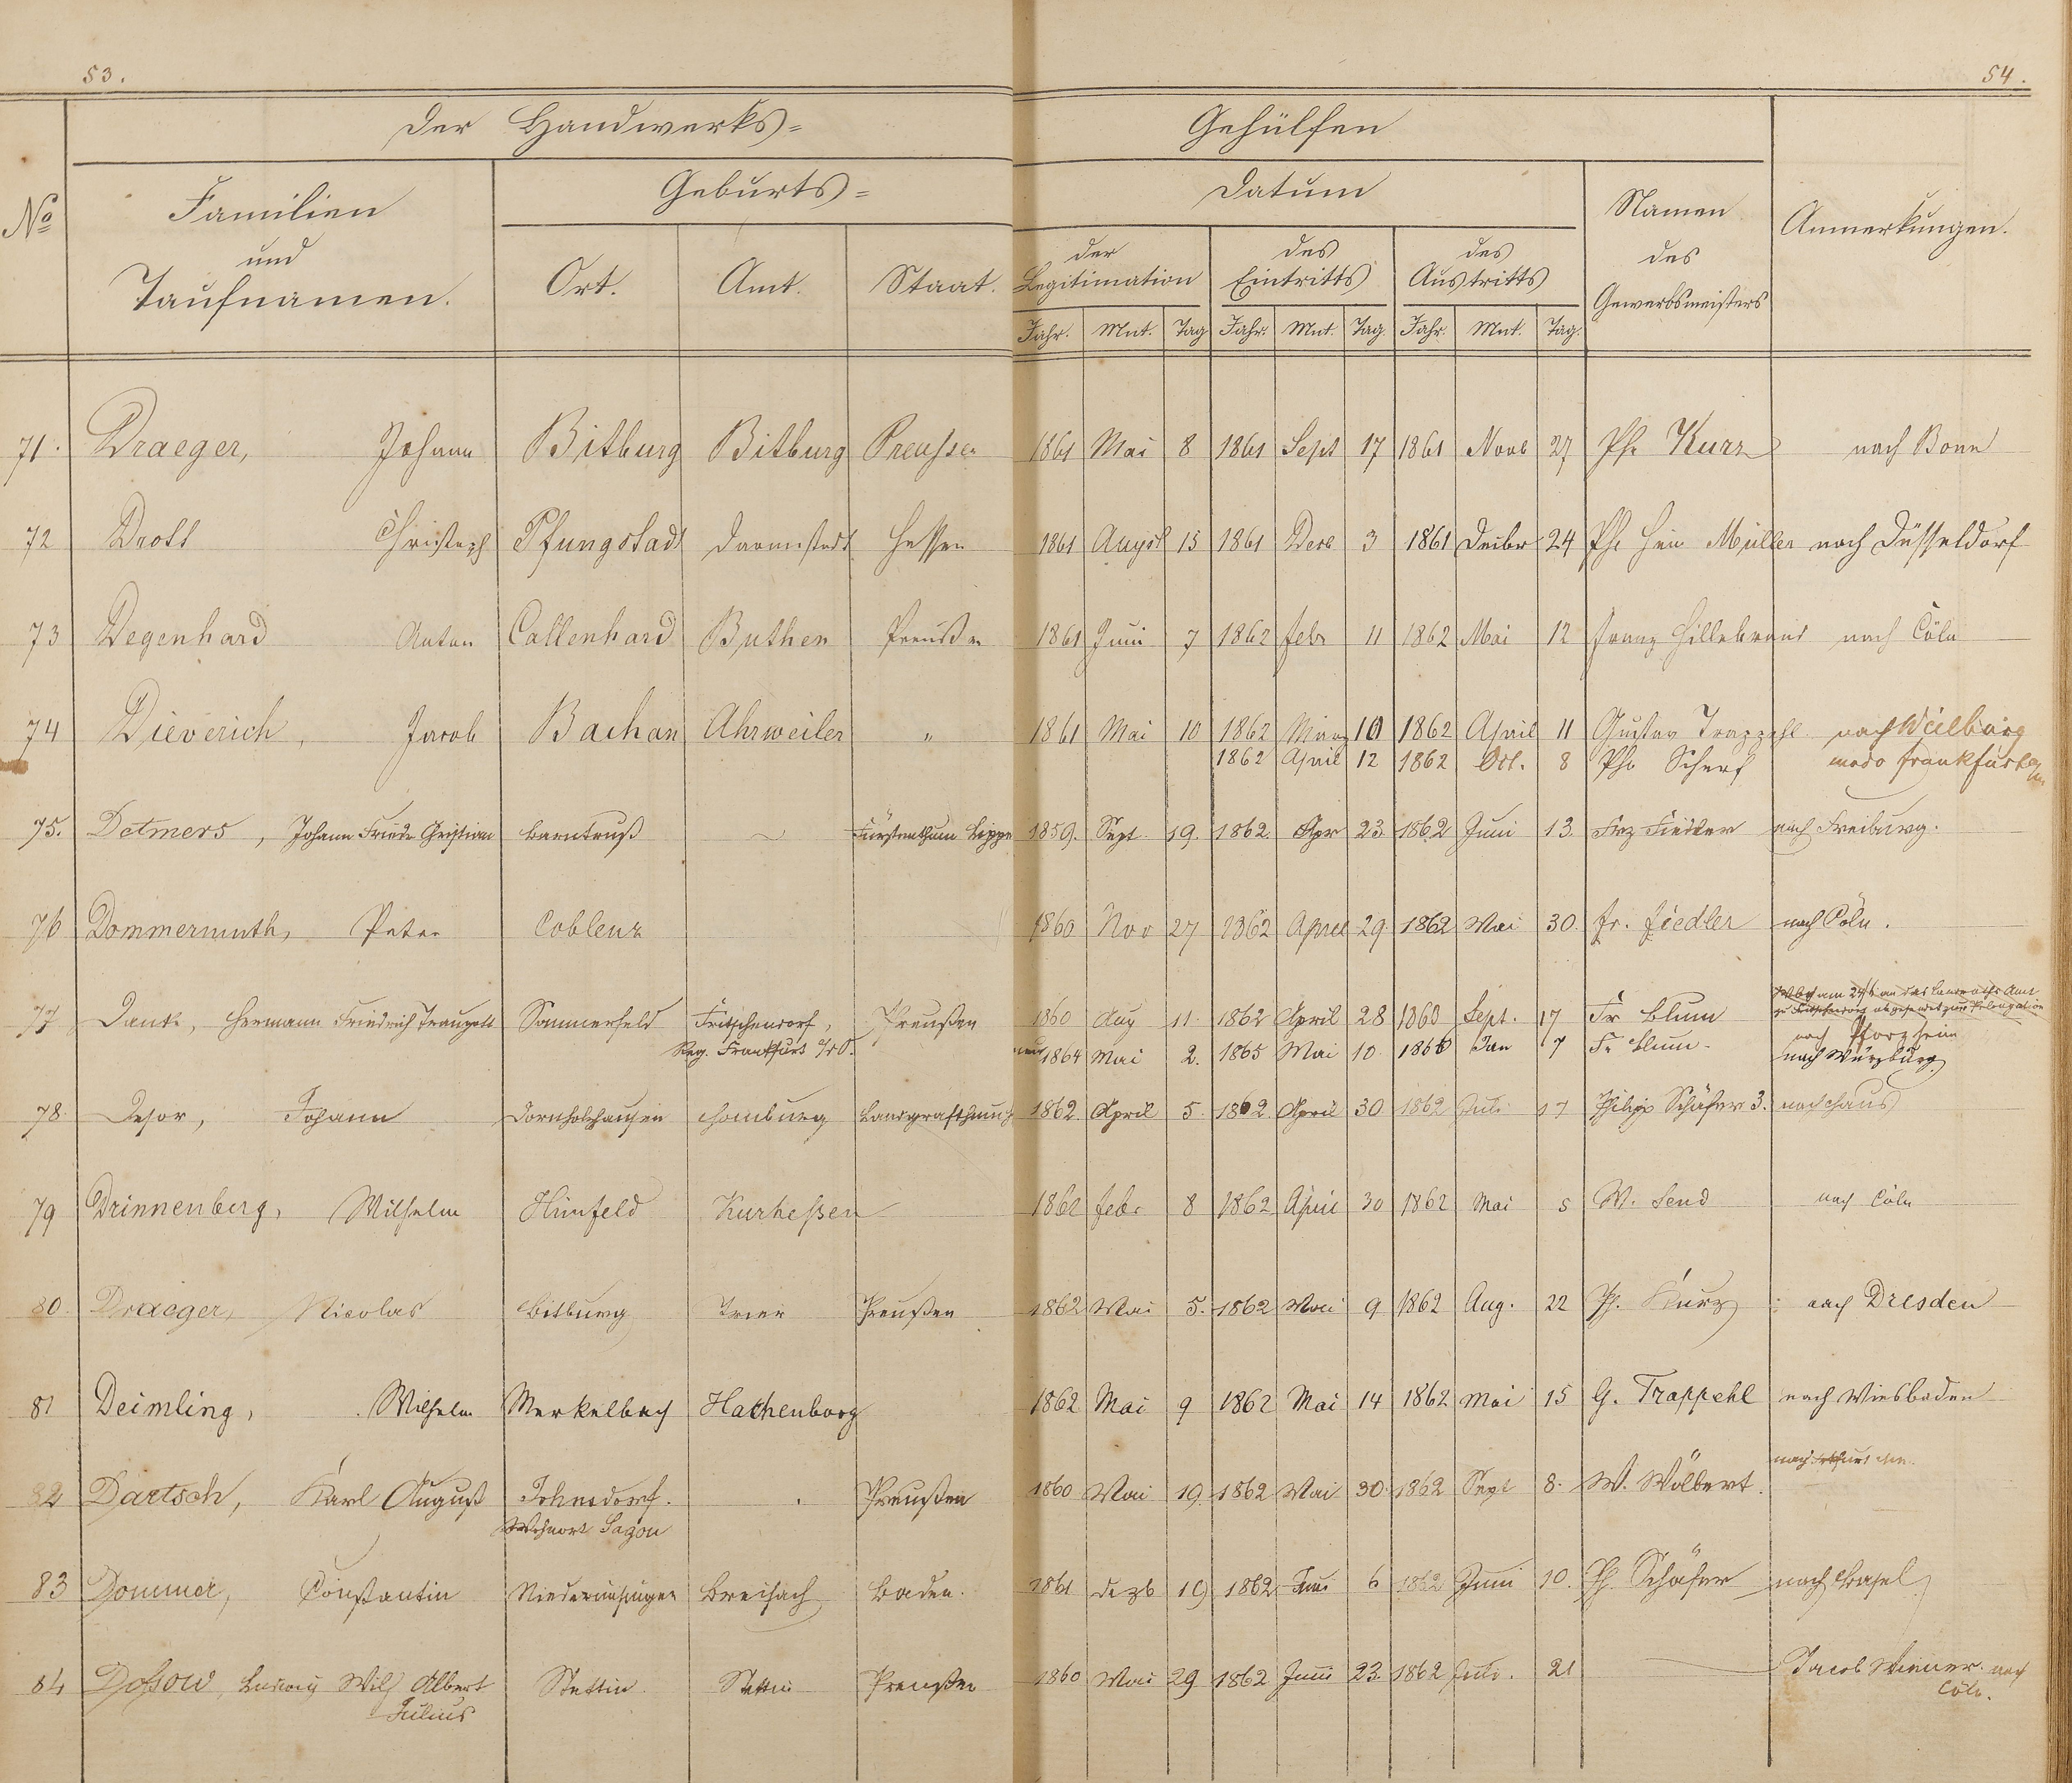 53.
54.
Der Handwerks=
Gehülfen
No
Familien
und
Taufnamen.
Geburts=
Ort. Amt. Staat.
Datum
der
Legitimation
des
Eintritts
des
Austritts
Jahr. Mnt. Tag Jahr. Mnt. Tag Jahr. Mnt. Tag.
Namen
des
Gewerbsmeisters
Anmerkungen.
71. Draeger, Johann Bitburg Bitburg Preußen 1861 Mai 8 1861 Sept 17 1861 Novb 27 Ph. Kurz nach Bonn
72 Drott Christoph Pfungstadt Darmstadt Hessen 1861 August 15 1861 Decb 3 1861 Decbr 24 Ph. Hein Müller nach Düsseldorf
73 Degenhard Anton Callenhard Büthen Preußen 1861 Juni 7 1862 Febr 11 1862 Mai 12 Franz Hillebrand nach Cöln
74 Dieverich, Jacob Bachan Ahrweiler " 1861 Mai 10 1862 März 10 1862 April 11 Gustav Trappehl nach Weilburg
1862 April 12 1862 Oct. 8 Ph. Scherf modo Frankfurt
75. Detmers, Johann Friedr Christian Barntruß ~ Fürstenthum Lippe 1859. Sept. 19. 1862 Apr 23. 1862 Juni 13. Frz Fiedler nach Freiburg.
76 Dommermuth, Peter Coblenz 1860 Nov 27 1862 April 29. 1862 Mai 30. Fr. Fiedler nach Cöln.
77 Danke, Hermann Friedrich Traugott Sommerfeld Fritschendorf, Preußen 1860 Aug 11. 1862 April 28 1863 Sept. 17 Fr Blum
Wbch am 24/4 an das Landraths Amt
zu abgesendet zur Prolongation
nach Pforzheim
Reg. Frankfurt a/O. 1864 Mai 2. 1865 Mai 10. 1866 Jan 7 Fr Blum. nach Würzburg.
78. Desor, Johann Dornholzhausen Homburg Landgrafthum 1862. April 5. 1862. April 30 1862 Juli 17 Philipp Schäfer 3. nach Haus
79 Drinnenberg, Wilhelm Hünfeld Kurheßen 1862 Febr 8 1862 April 30 1862 Mai 5 W. Send nach Cöln
80. Draeger, Nicolas Bitburg Trier Preußen 1862 Mai 5. 1862 Mai 9 1862 Aug. 22 Ph. Kurz nach Dresden
81 Deimling, Wilhelm Merkelbach Hachenburg 1862 Mai 9 1862 Mai 14 1862 Mai 15 G. Trappehl nach Wiesbaden
82 Dartsch, Karl August Johnsdorf. Preußen 1860 Mai 19. 1862 Mai 30. 1862 Sept 8. W. Wölbert. nach
Wohnort Sagan
83 Dommer, Constantin Niederrimsingen Breisach Baden. 1861 Dezb 19 1862 Juni 6 1862 Juni 10. Ph. Schäfer nach Basel.
84 Doßow, Ludwig Wilh Albert Stettin Stettin Preußen 1860 Mai 29 1862 Juni 23. 1862 Juli. 21 Jacob Wiener. nach
Julius Cöln.